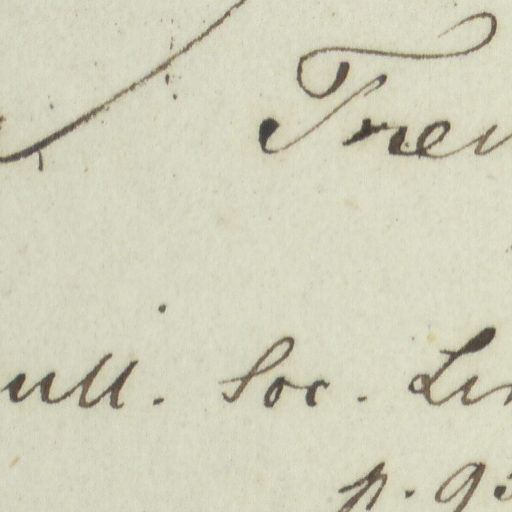 Trev
ull. Soc. Lin
p. 93